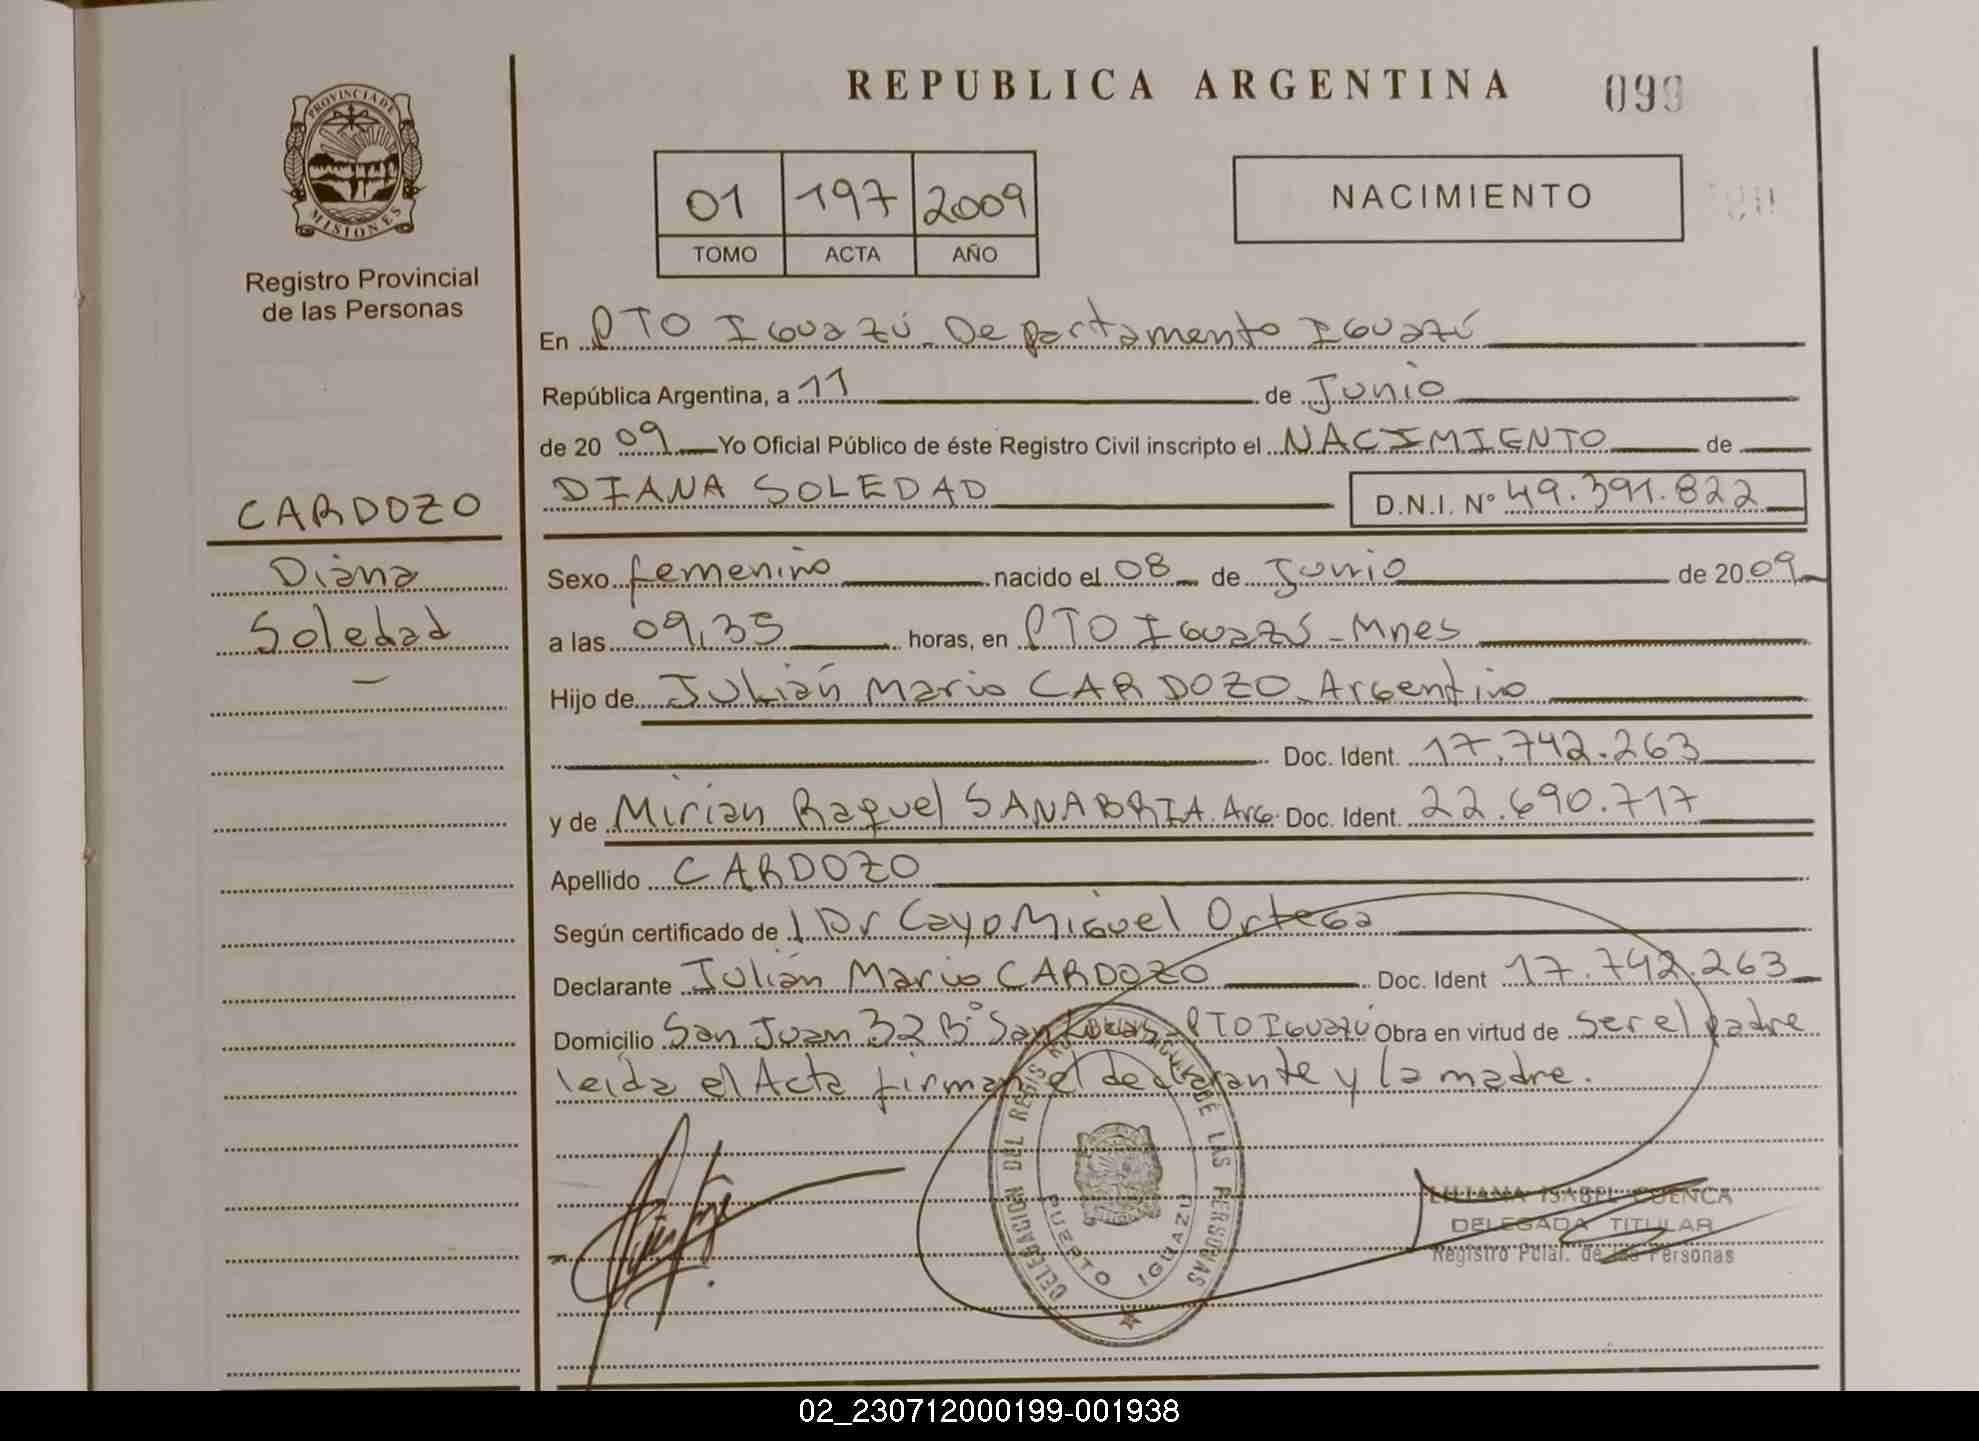 REPUBLICA ARGENTINA 099
PROVINCIA DE
MISIONES
Registro Provincial
de las Personas
01 197 2009
TOMO ACTA AÑO
NACIMIENTO
En PTO IGuazú - Departamento IGuazú
República Argentina, a 11 de Junio
de 2009 Yo Oficial Público de éste Registro Civil inscripto el NACIMIENTO de
CARDOZO
Diana
Soledad
DIANA SOLEDAD D.N.I. Nº 49.391.822
Sexo femenino nacido el 08 de Junio de 2009
a las 09,35 horas, en PTO IGuazú - Mnes
Hijo de Julián Mario CARDOZO - ArGentino
Doc. Ident. 17.742.263
y de Mirian Raquel SANABRIA. ArG. Doc. Ident. 22.690.717
Apellido CARDOZO
Según certificado de l Dr Cayo Miguel OrteGa
Declarante Julián Mario CARDOZO Doc. Ident 17.742.263
Domicilio San Juan 32 Bº San Lucas - PTO IGuazú Obra en virtud de ser el padre
leída el Acta firman el declarante y la madre.
DELEGACION DEL REGISTRO DE LAS PERSONAS
PUERTO IGUAZU
LILIANA ISABEL CUENCA
DELEGADA TITULAR
Registro Pcial. de las Personas
02_230712000199-001938